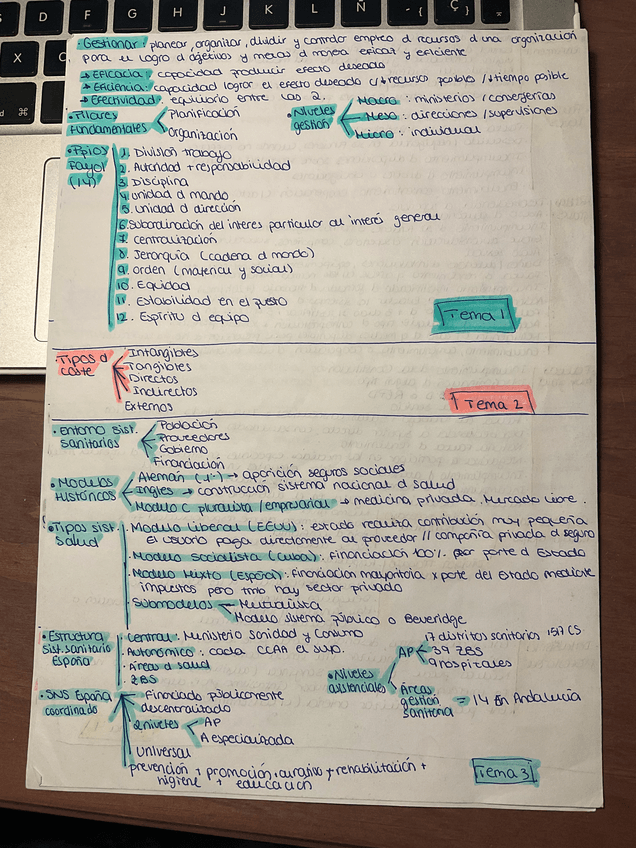 F G H J K L Ñ
X C
⌘
Ç
· Gestionar planear, organizar, dividir y controlar empleo d recursos d una organización
para el logro d objetivos y metas d manera eficaz y eficiente
→ Eficacia: capacidad producir efecto deseado
→ Eficiencia: capacidad lograr el efecto deseado c/↓recursos posibles /↓tiempo posible
→ Efectividad: equilibrio entre las 2.
· Pilares fundamentales
Planificación
Organización
· Niveles gestión
Macro: ministerios / consejerías
Meso: direcciones / supervisiones
Micro: individual
· Ppios Fayol (14)
1. División trabajo
2. Autoridad + responsabilidad
3. Disciplina
4. unidad d mando
5. Unidad d dirección
6. Subordinación del interes particular al interés general
7. centralización
8. Jerarquía (cadena d mando)
9. orden (material y social)
10. Equidad
11. Estabilidad en el puesto
12. Espíritu d equipo
Tema 1
· Tipos d coste
Intangibles
Tangibles
Directos
Indirectos
Externos
Tema 2
· Entorno sist. sanitarios
Población
Proveedores
Gobierno
Financiación
· Modelos Históricos
Alemán (1º) → aparición seguros sociales
Ingles → construcción sistema nacional d salud
Modelo C pluralista / empresarial → medicina privada. Mercado libre.
· Tipos sist salud
· Modelo Liberal (EEUU): estado realiza contribución muy pequeña
El usuario paga directamente al proveedor // compañía privada d seguro
· Modelo Socialista (Cuba): Financiación 100% por parte d Estado
· Modelo Mixto (España): Financiacion mayoritaria x parte del Estado mediante
impuestos pero tmb hay sector privado
· Submodelos
Mutualista
Modelo sistema público o Beveridge
· Estructura sist. sanitario España
Central: Ministerio Sanidad y Consumo
Autonómico: cada CCAA el suyo.
Áreas d salud
ZBS
· Niveles asistenciales
AP
17 distritos sanitarios 1517 CS
39 ZBS
9 hospitales
Áreas gestión sanitaria = 14 en Andalucía
· SNS España coordinado
Financiado públicamente
descentralizado
2 niveles
AP
A especializada
Universal
prevención + promoción + curativo + rehabilitación +
higiene + educación
Tema 3